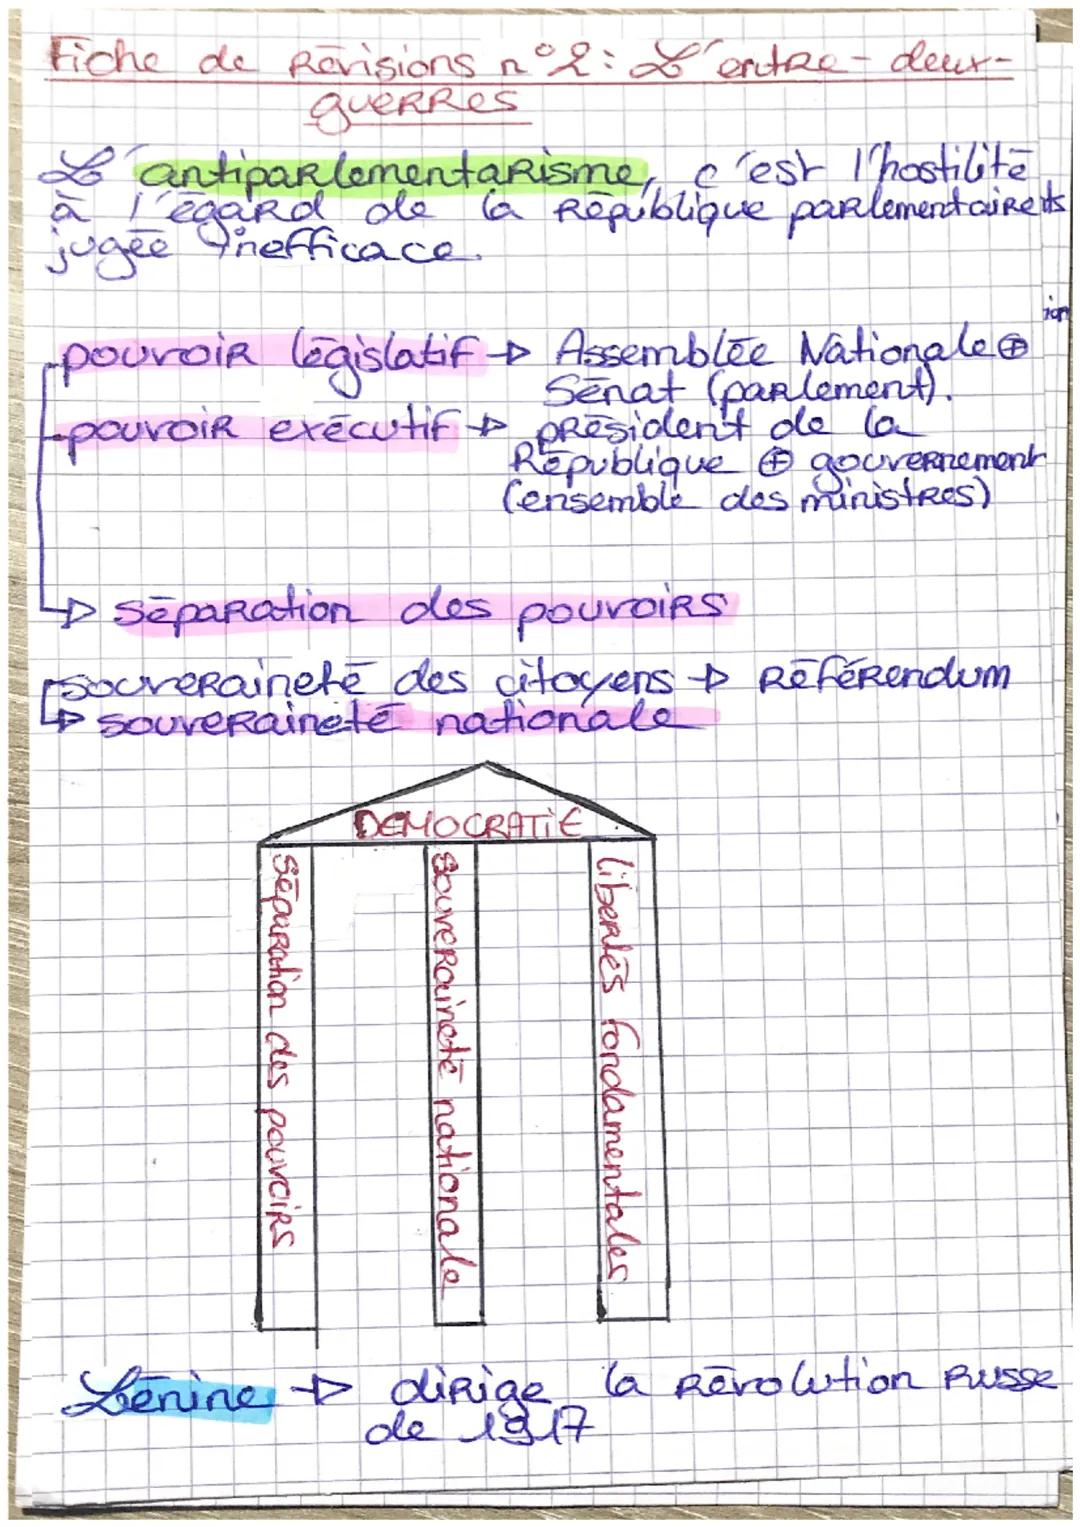 Fiche de Révisions n°2: L'entre-deux-
guerres
L'antiparlementarisme, c'est l'hostilité
à l'égard de la République parlementaire
jugée inefficace.
pouvoir législatif → Assemblée Nationale ⊕
Sénat (parlement).
pouvoir exécutif → président de la
République ⊕ gouvernement
(ensemble des ministres)
→ Séparation des pouvoirs
souveraineté des citoyens → Référendum
→ souveraineté nationale
DEMOCRATIE
Séparation des pouvoirs
souveraineté nationale
libertés fondamentales
Lénine → dirige la révolution Russe
de 1917